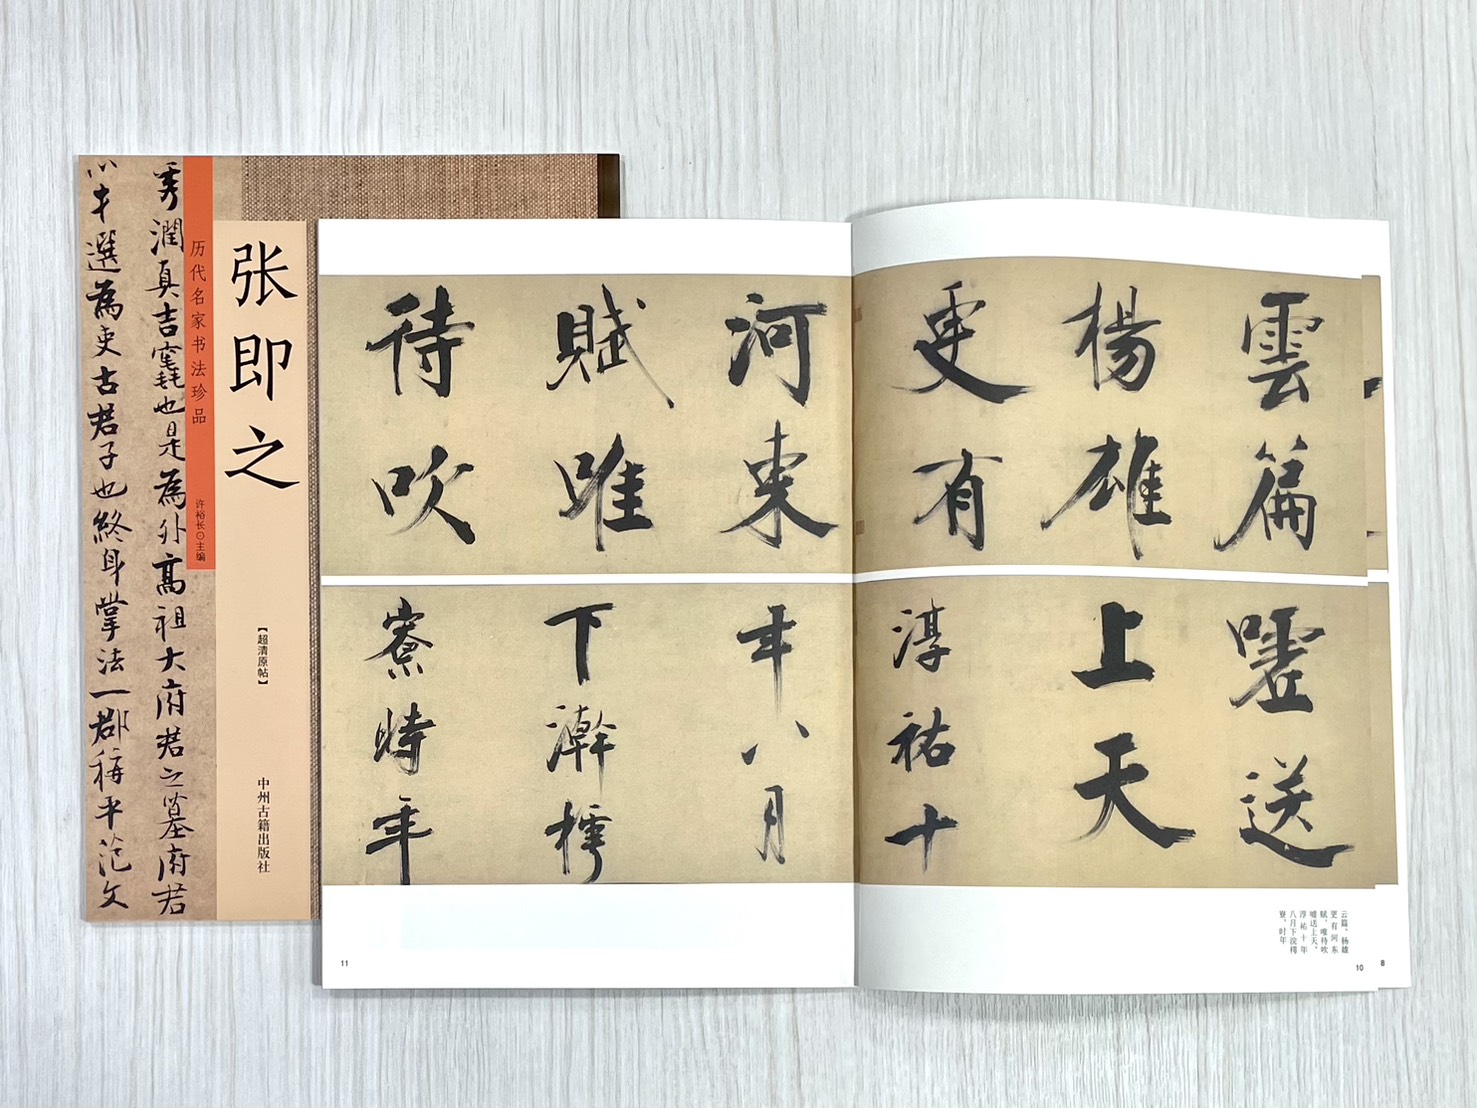 秀潤真吉窀也是為外高祖大府君之墓府君
才選為吏古君子也終身掌法一郡稱平范文
历代名家书法珍品
许裕长⊙主编
张即之
【超清原帖】
中州古籍出版社
雲篇
楊雄
更有
河東
賦唯
待吹
噓送
上天
淳祐十
年八月
下澣樗
寮時年
云篇、杨雄
更有河东
赋、唯待吹
嘘送上天。
淳祐十年
八月下浣樗
寮、时年
11
10
8